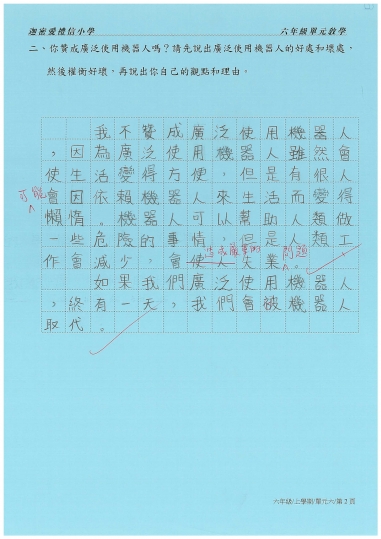 迦密愛禮信小學 六年級單元教學
二、你贊成廣泛使用機器人嗎？請先說出廣泛使用機器人的好處和壞處，
然後權衡好壞，再說出你自己的觀點和理由。
我不贊成廣泛使用機器人
，因為廣泛使用機器人雖然會
使生活變得方便，但是有很人
可能
會因依賴機器人來生活而變得
懶惰。機器人可以幫助人類做
一些危險的事情，但是人類工
造成嚴重的 問題
作會減少，會使人失業。
如果我們廣泛使用機器人
，終有一天，我們會被機器人
取代。
六年級/上學期/單元六/第2頁